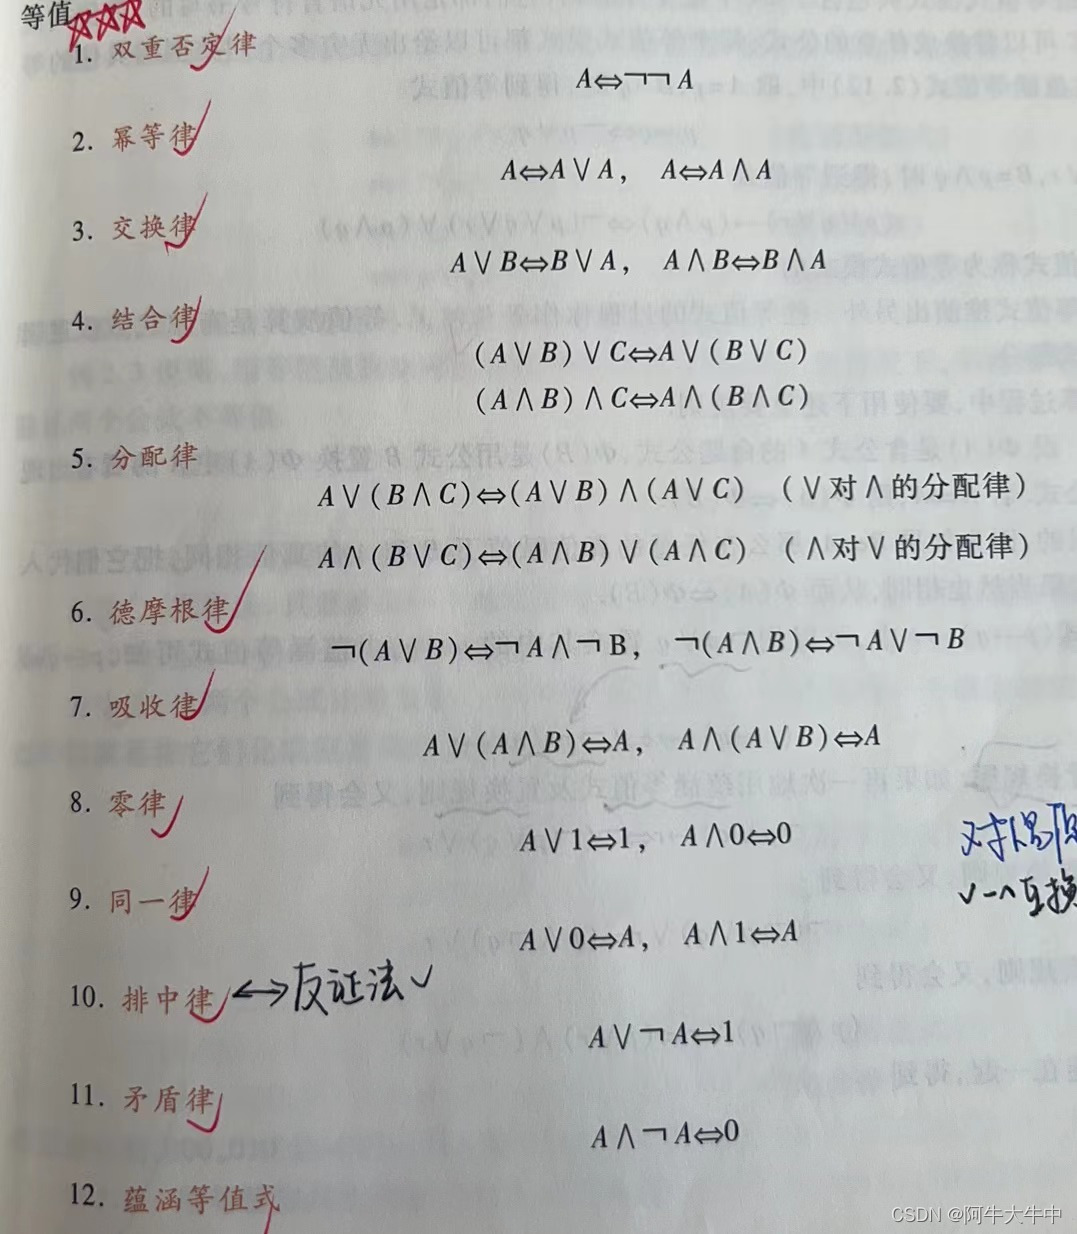 等值
1. 双重否定律
A⇔¬¬A
2. 幂等律
A⇔A∨A， A⇔A∧A
3. 交换律
A∨B⇔B∨A， A∧B⇔B∧A
4. 结合律
(A∨B)∨C⇔A∨(B∨C)
(A∧B)∧C⇔A∧(B∧C)
5. 分配律
A∨(B∧C)⇔(A∨B)∧(A∨C) （∨对∧的分配律）
A∧(B∨C)⇔(A∧B)∨(A∧C) （∧对∨的分配律）
6. 德摩根律
¬(A∨B)⇔¬A∧¬B， ¬(A∧B)⇔¬A∨¬B
7. 吸收律
A∨(A∧B)⇔A， A∧(A∨B)⇔A
8. 零律
A∨1⇔1， A∧0⇔0
对偶
9. 同一律
∨-∧互换
A∨0⇔A， A∧1⇔A
10. 排中律 ⟷ 反证法
A∨¬A⇔1
11. 矛盾律
A∧¬A⇔0
12. 蕴涵等值式
CSDN @阿牛大牛中